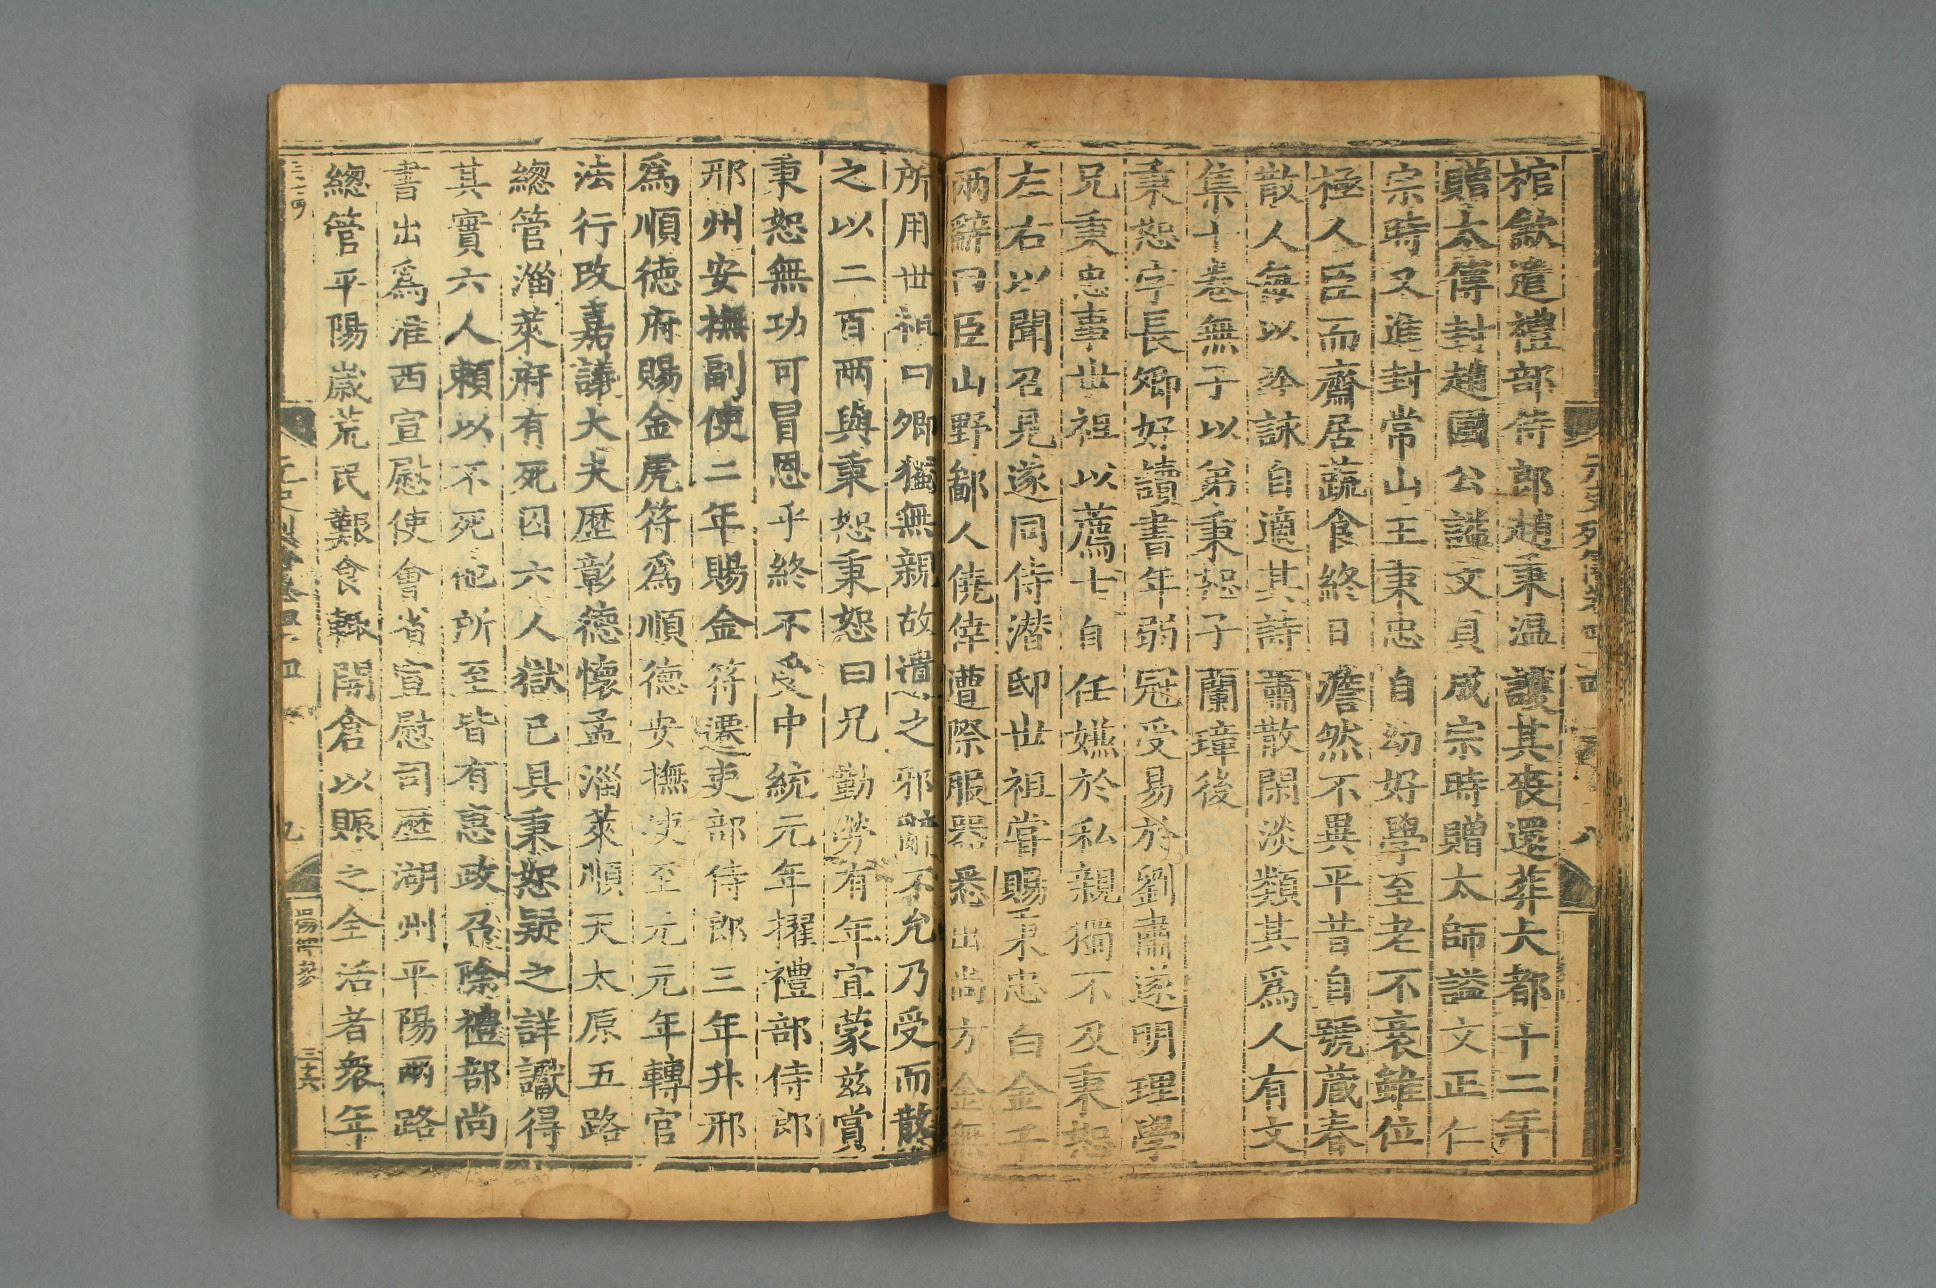 棺斂遣禮部侍郎趙秉温護其喪還葬大都十二年
贈太傅封趙國公謚文貞成宗時贈太師謚文正仁
宗時又進封常山王秉忠自幼好學至老不衰雖位
極人臣而齋居蔬食終日澹然不異平昔自號蔵春
散人每以吟詠自適其詩蕭散閑淡類其爲人有文
集十卷無子以弟秉恕子蘭璋後
秉恕字長卿好讀書年弱冠受易於劉肅遂明理學
兄秉忠事世祖以薦士自任嫌於私親獨不及秉恕
左右以聞召見遂同侍潛邸世祖嘗賜秉忠白金千
兩辭曰臣山野鄙人僥倖遭際服器悉出尚方金無
所用世祖曰卿獨無親故遺之邪辭不允乃受而散
之以二百兩與秉恕秉恕曰兄勤勞有年宜蒙兹賞
秉恕無功可冒恩乎終不受中統元年擢禮部侍郎
邢州安撫副使二年賜金符遷吏部侍郎三年升邢
爲順德府賜金虎符爲順德安撫使至元元年轉官
法行改嘉議大夫歷彰德懷孟淄萊順天太原五路
總管淄萊府有死囚六人獄已具秉恕疑之詳讞得
其實六人賴以不死他所至皆有惠政召除禮部尚
書出爲淮西宣慰使會省宣慰司歷湖州平陽兩路
總管平陽歲荒民艱食輙開倉以賑之全活者衆年